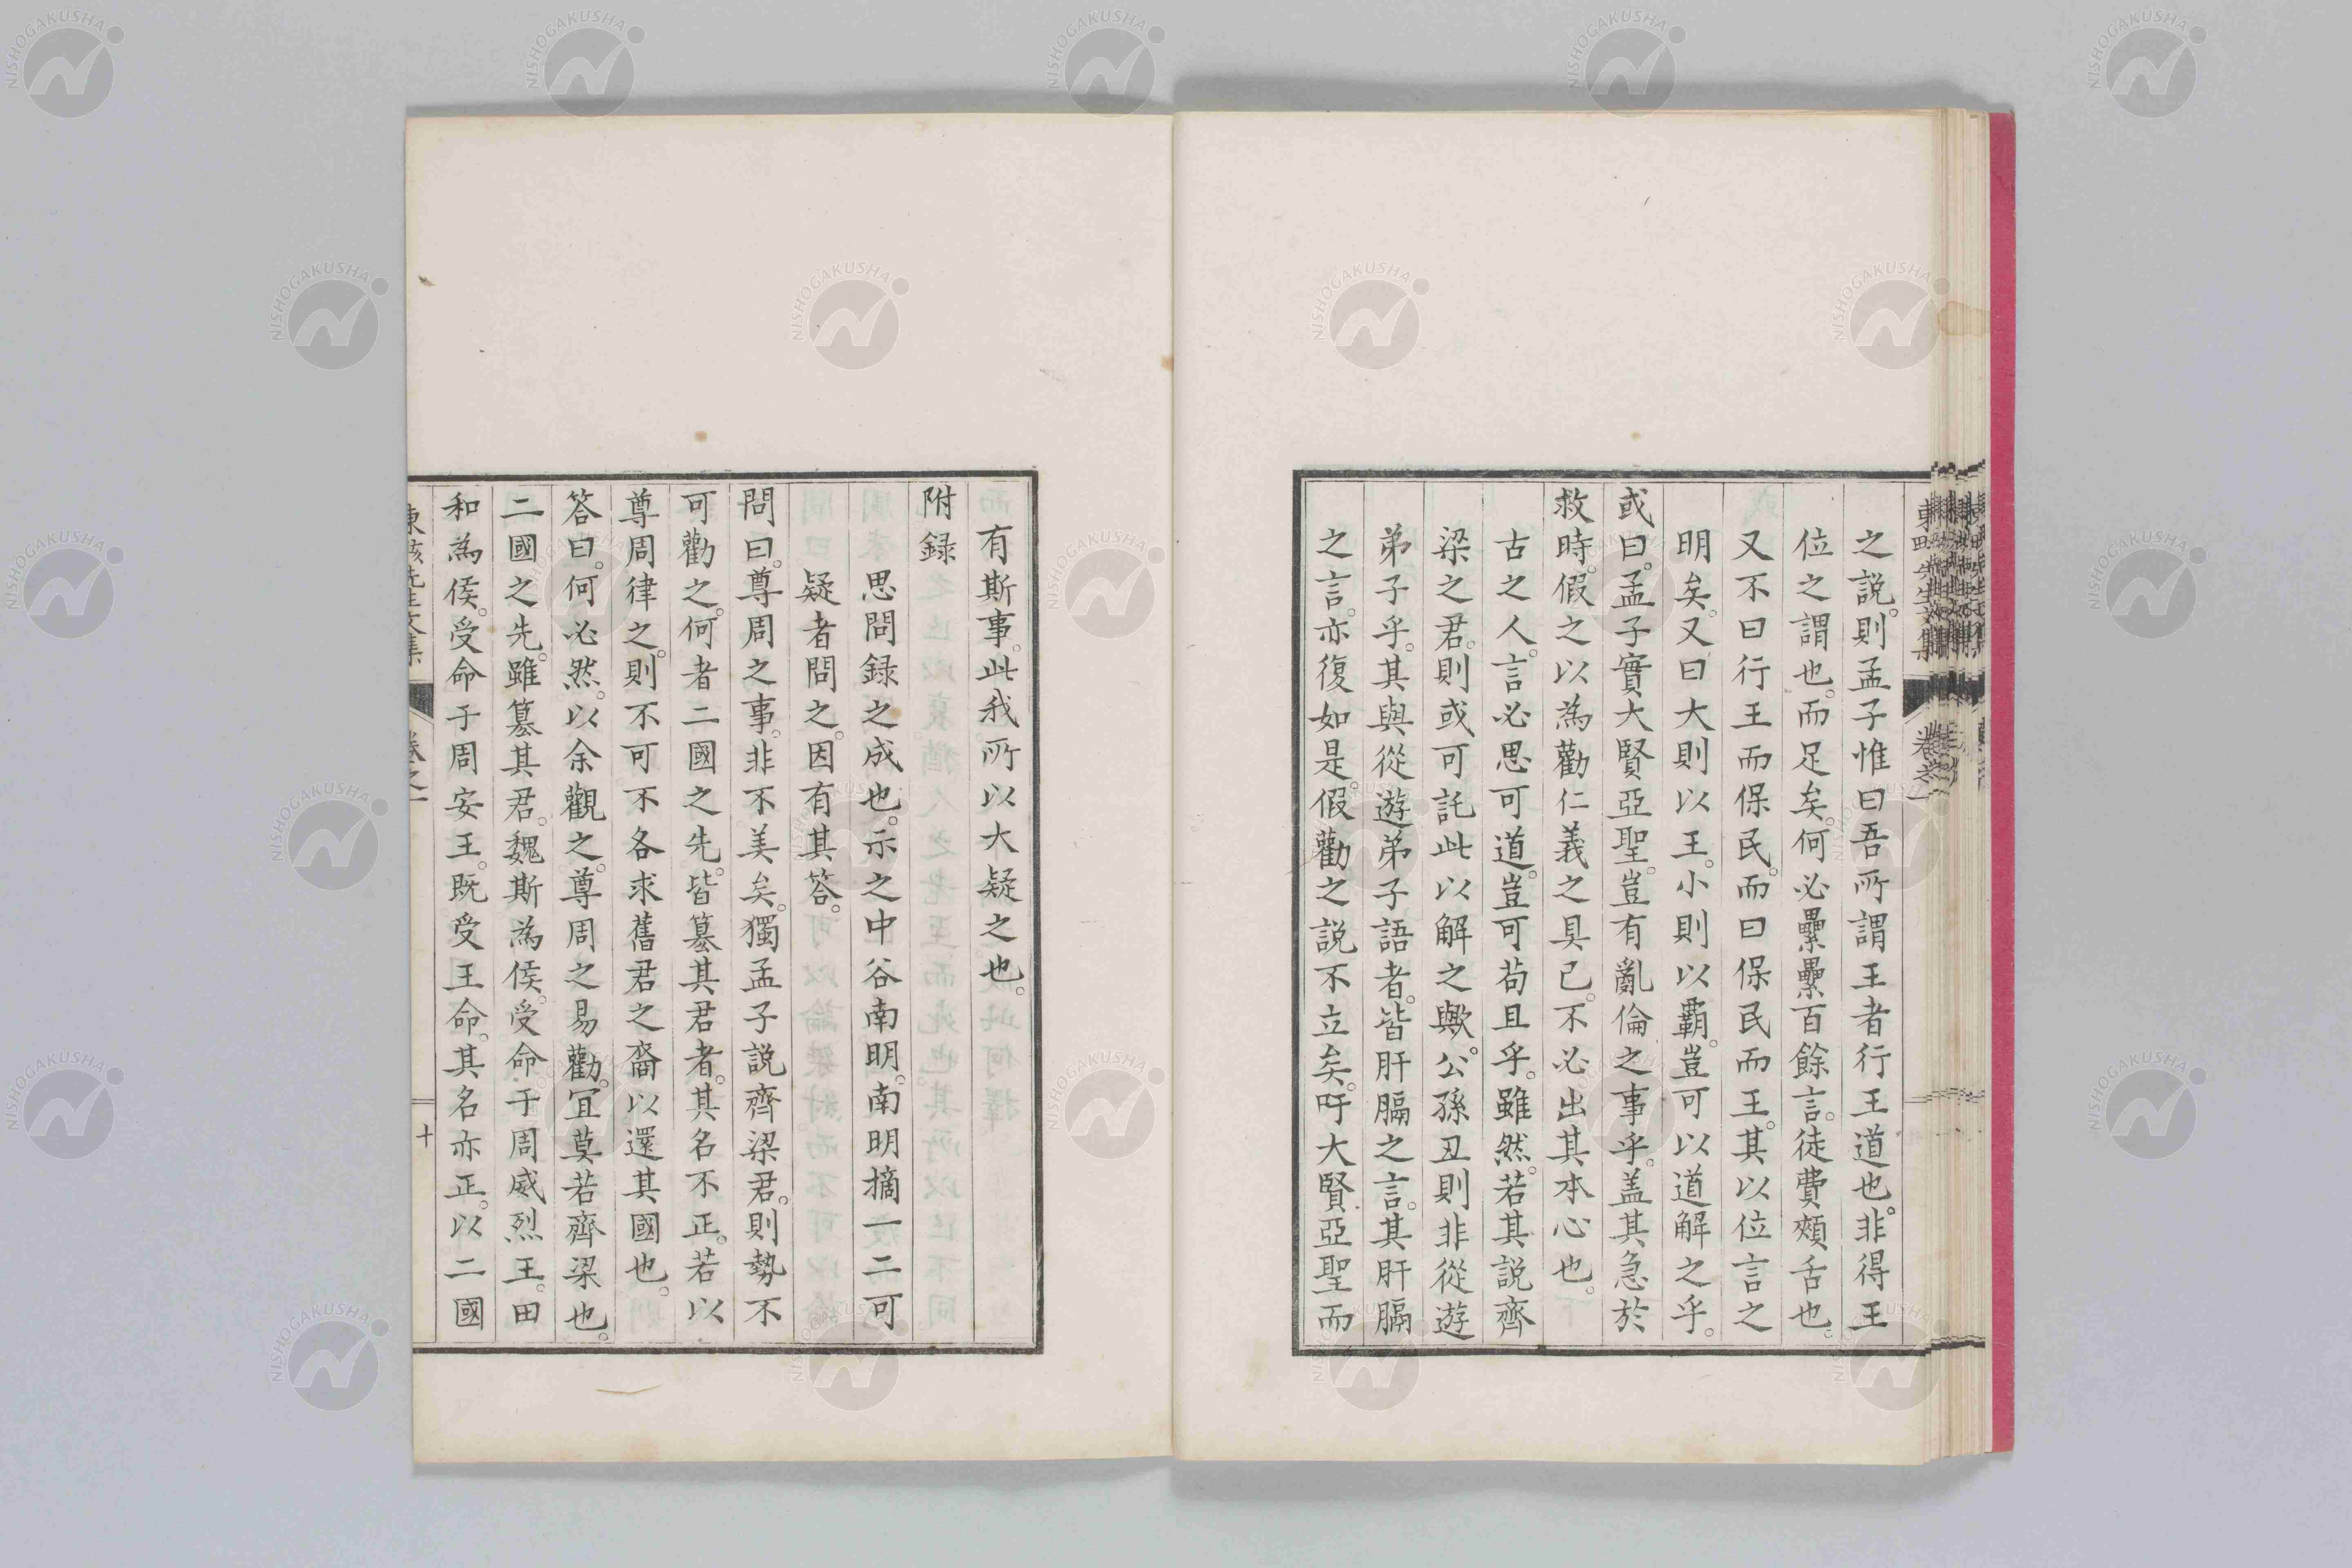 之説。則孟子惟曰吾所謂王者行王道也。非得王
位之謂也。而足矣。何必纍纍百餘言。徒費頰舌也。
又不曰行王而保民。而曰保民而王。其以位言之
明矣。又曰大則以王。小則以霸。豈可以道解之乎。
或曰。孟子實大賢亞聖。豈有亂倫之事乎。盖其急於
救時。假之以為勸仁義之具已。不必出其本心也。
古之人。言必思可道。豈可苟且乎。雖然。若其説齊
梁之君。則或可託此以解之歟。公孫丑則非從遊
弟子乎。其與從遊弟子語者。皆肝膈之言。其肝膈
之言。亦復如是。假勸之説不立矣。吁大賢亞聖而
有斯事。此我所以大疑之也。
附録
思問録之成也。示之中谷南明。南明摘一二可
疑者問之。因有其答。
問曰。尊周之事。非不美矣。獨孟子説齊梁君。則勢不
可勸之。何者二國之先。皆簒其君者。其名不正。若以
尊周律之。則不可不各求舊君之裔以還其國也。
答曰。何必然。以余觀之。尊周之易勸。冝莫若齊梁也。
二國之先。雖簒其君。魏斯為侯。受命于周威烈王。田
和為侯。受命于周安王。既受王命。其名亦正。以二國
卷之一
十
NISHOGAKUSHA